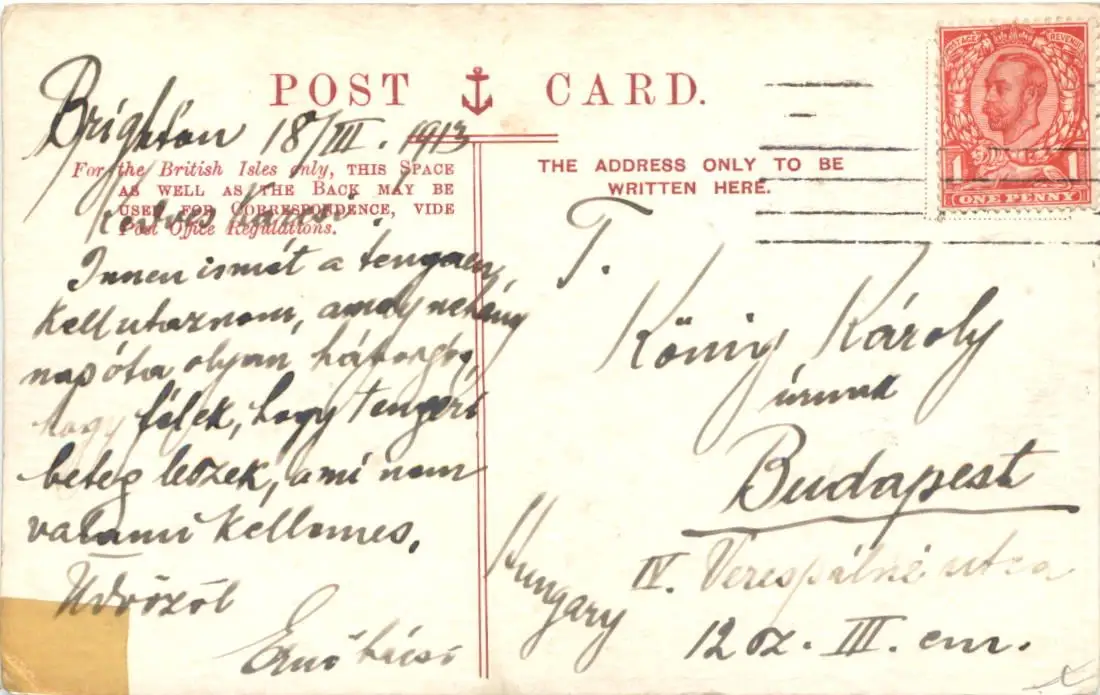 POST CARD.
Brighton 18/III. 1913
For the British Isles only, THIS SPACE
AS WELL AS THE BACK MAY BE
USED FOR CORRESPONDENCE, VIDE
Post Office Regulations.
Kedves
Innen ismét a tengeren
kell utaznom, amely néhány
nap óta olyan háborgós,
hogy félek, hogy tengeri
beteg leszek, ami nem
valami kellemes.
Üdvözöl
Ernő bácsi
THE ADDRESS ONLY TO BE
WRITTEN HERE.
POSTAGE REVENUE
1 1
ONE PENNY
T.
König Károly
úrnak
Budapest
Hungary
IV. Verespálné utca
12 sz. III. em.